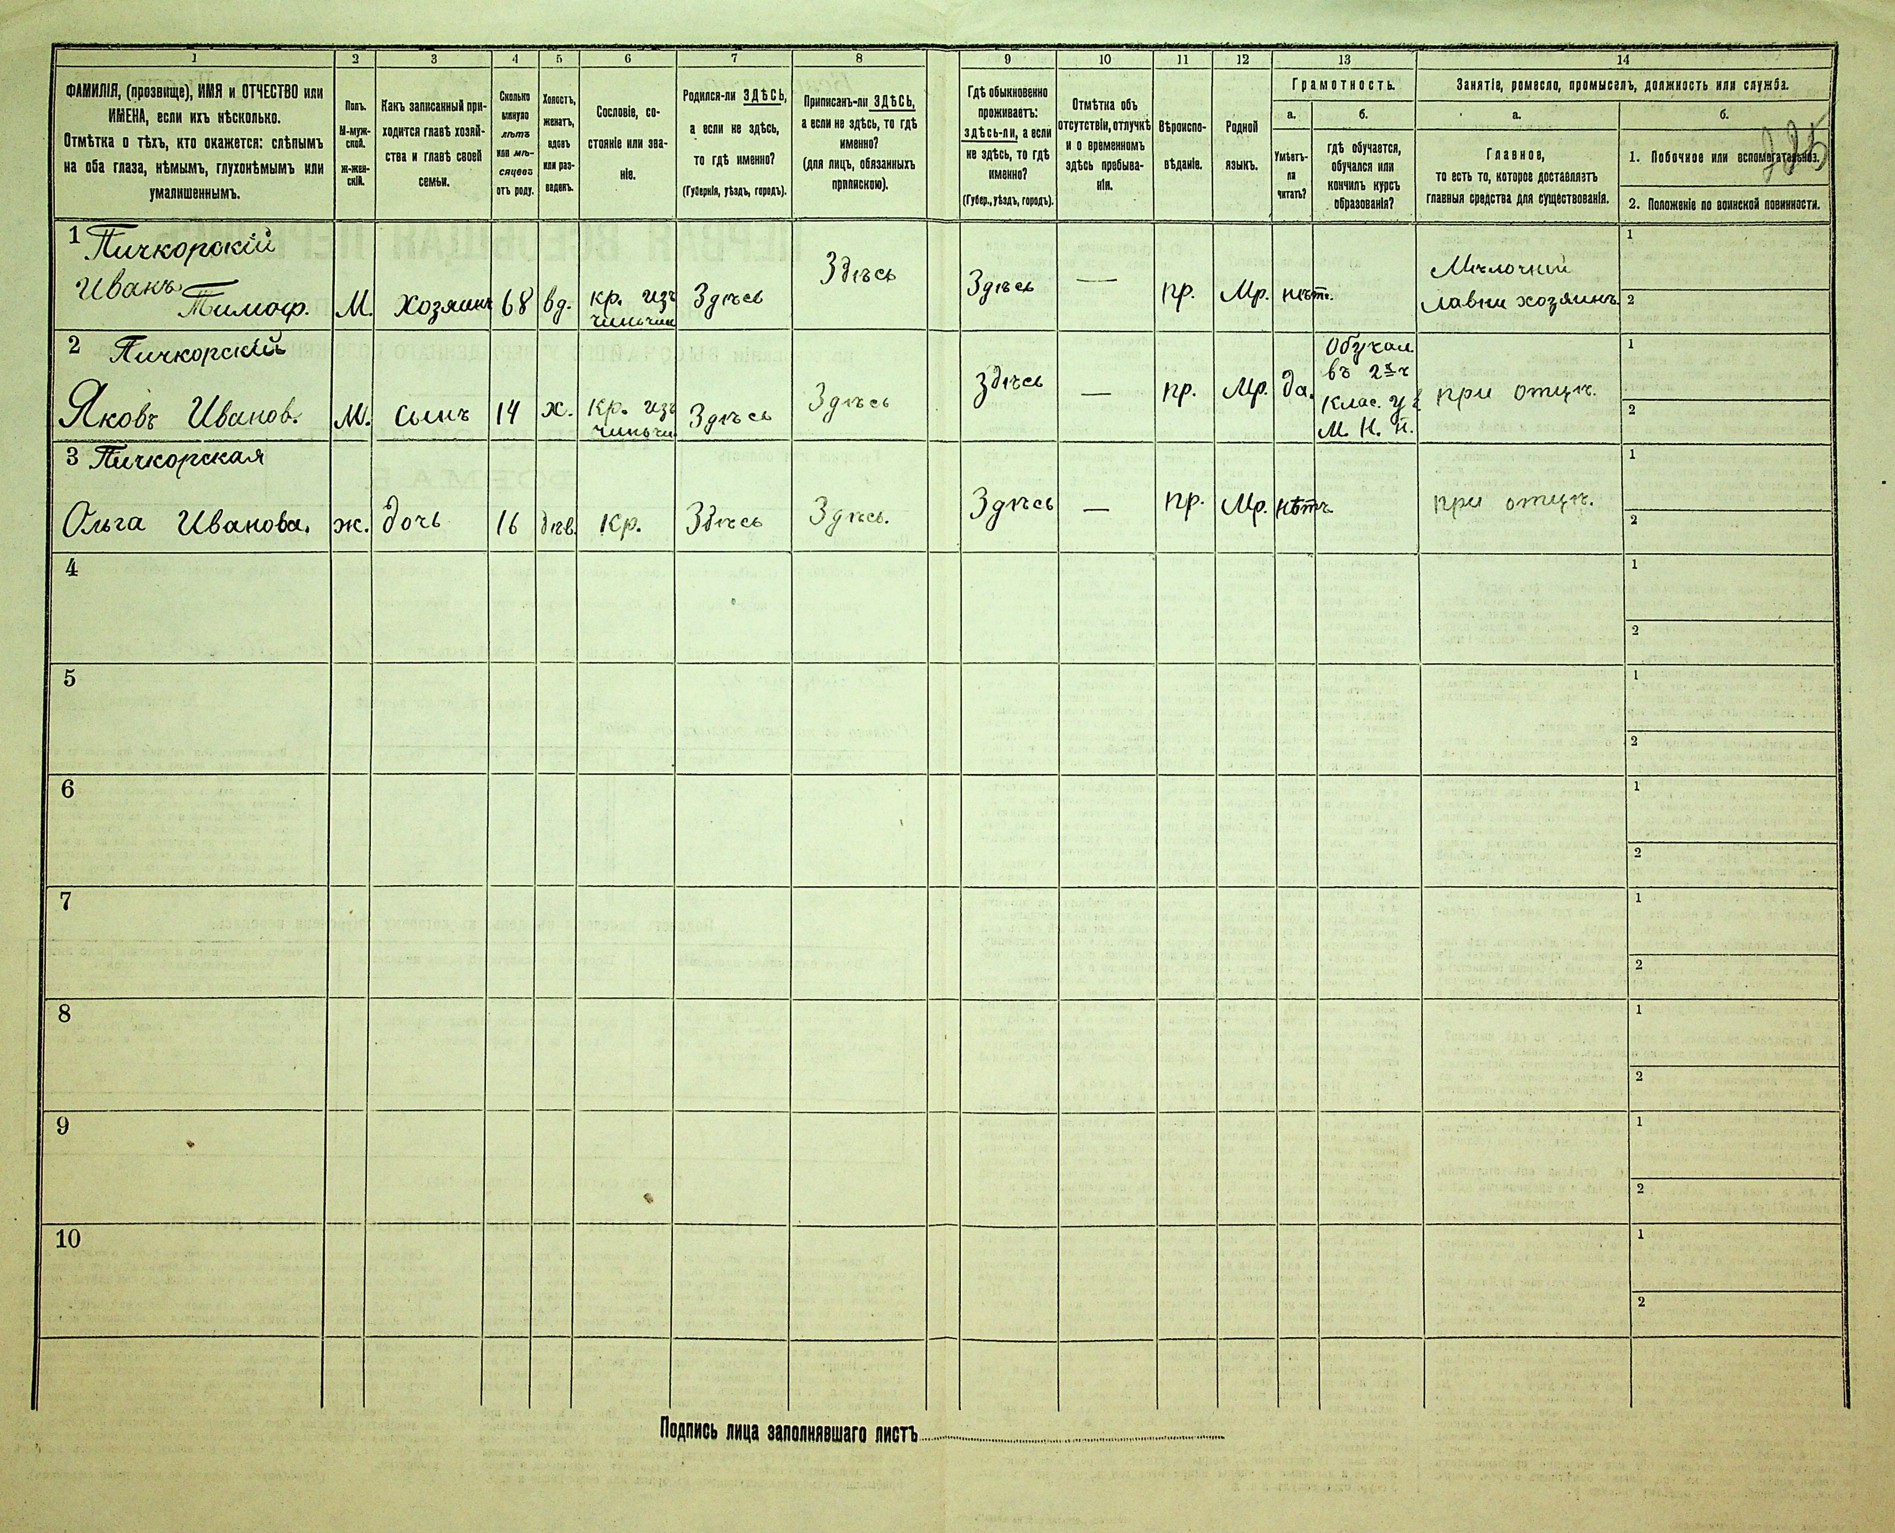 1 2 3 4 5 6 7 8 9 10 11 12 13 14
ФАМИЛІЯ, (прозвище), ИМЯ и ОТЧЕСТВО или
ИМЕНА, если ихъ нѣсколько.
Отмѣтка о тѣхъ, кто окажется: слѣпымъ
на оба глаза, нѣмымъ, глухонѣмымъ или
умалишеннымъ.
Полъ.
М-муж-
ской.
ж-жен-
скій.
Какъ записанный при-
ходится главѣ хозяй-
ства и главѣ своей
семьи.
Сколько
минуло
лѣтъ
или мѣ-
сяцевъ
отъ роду.
Холостъ,
женатъ,
вдовъ
или раз-
веденъ.
Сословіе, со-
стояніе или зва-
ніе.
Родился-ли ЗДѢСЬ,
а если не здѣсь,
то гдѣ именно?
(Губернія, уѣздъ, городъ).
Приписанъ-ли ЗДѢСЬ,
а если не здѣсь, то гдѣ
именно?
(для лицъ, обязанныхъ
припискою).
Гдѣ обыкновенно
проживаетъ:
здѣсь-ли, а если
не здѣсь, то гдѣ
именно?
(Губер., уѣздъ, городъ).
Отмѣтка объ
отсутствіи, отлучкѣ
и о временномъ
здѣсь пребыва-
ніи.
Вѣроиспо-
вѣданіе.
Родной
языкъ.
Грамотность.
а. б.
Умѣетъ-
ли
читать?
гдѣ обучается,
обучался или
кончилъ курсъ
образованія?
Занятіе, ремесло, промыселъ, должность или служба.
а. б.
Главное,
то есть то, которое доставляетъ
главныя средства для существованія.
1. Побочное или вспомогательное.
2. Положеніе по воинской повинности.
225
1 Пичкорскій
Иванъ
Тимоф. М. хозяинъ 68 вд. кр. изъ Здѣсь Здѣсь Здѣсь — пр. Мр. нѣтъ.
Мелочной
лавки хозяинъ
1
2
2 Пичкорскій
Яковъ Иванов. М. сынъ 14 х. кр. изъ Здѣсь Здѣсь Здѣсь — пр. Мр. да.
Обучал
въ 2хъ
клас. у.
М. Н. П.
при отцѣ.
1
2
3 Пичкорская
Ольга Иванова. ж. дочь 16 дѣв. кр. Здѣсь Здѣсь. Здѣсь — пр. Мр. нѣтъ при отцѣ.
1
2
4
1
2
5
1
2
6
1
2
7
1
2
8
1
2
9
1
2
10
1
2
Подпись лица заполнявшаго листъ